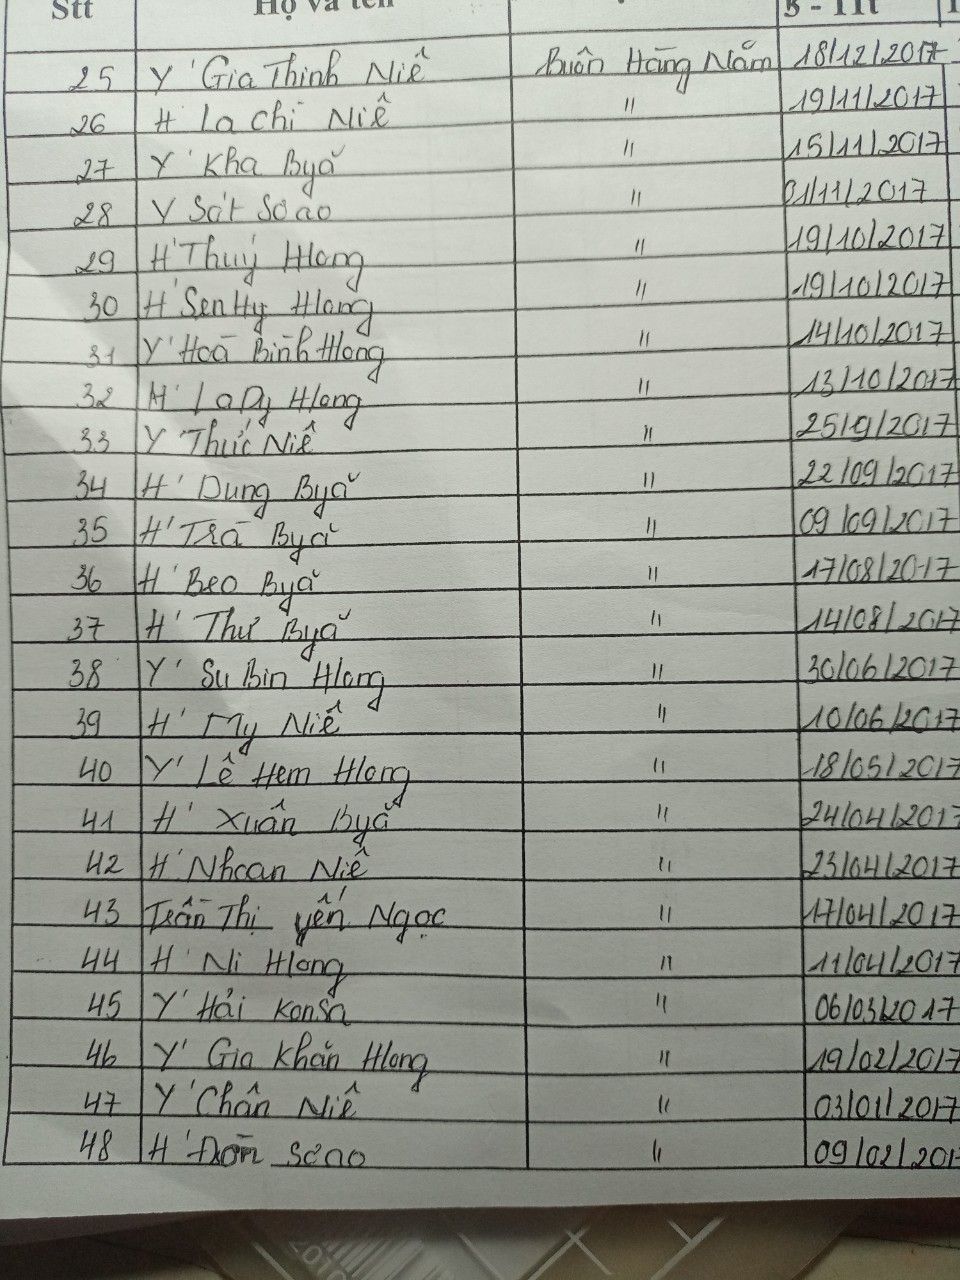 Stt Họ và tên
25 Y' Gia Thinh Niê Buôn Hằng Năm 18/12/2017
26 H' La Chi Niê " 19/11/2017
27 Y' Kha Byă " 15/11/2017
28 Y Sát Sơao " 01/11/2017
29 H' Thuý Hlong " 19/10/2017
30 H' Sen Hy Hlong " 19/10/2017
31 Y' Hoà Bình Hlong " 14/10/2017
32 H' La Dy Hlong " 13/10/2017
33 Y' Thức Niê " 25/9/2017
34 H' Dung Byă " 22/09/2017
35 H' Trà Byă " 09/09/2017
36 H' Beo Byă " 17/08/2017
37 H' Thư Byă " 14/08/2017
38 Y' Su Bin Hlong " 30/06/2017
39 H' My Niê " 10/06/2017
40 Y' Lê Hem Hlong " 18/05/2017
41 H' Xuân Byă " 24/04/2017
42 H' Nhoan Niê " 23/04/2017
43 Trần Thị Yến Ngọc " 17/04/2017
44 H' Ni Hlong " 11/04/2017
45 Y' Hải Konsa " 06/03/2017
46 Y' Gia Khán Hlong " 19/02/2017
47 Y' Chân Niê " 03/01/2017
48 H' Đơn Sơao " 09/02/201